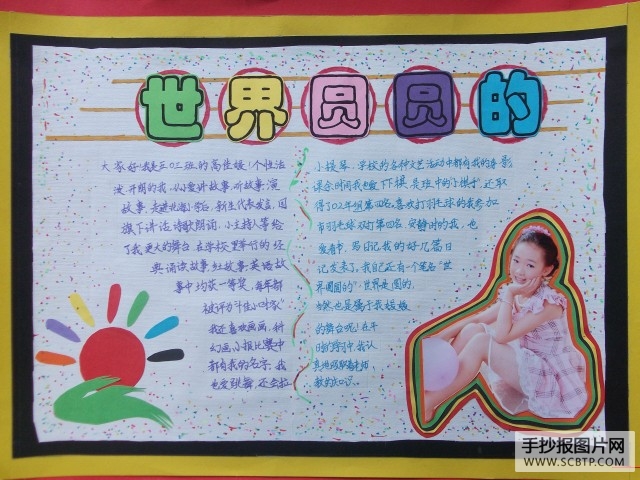 世界圆圆的
大家好!我是三〇三班的高佳媛!个性活
泼开朗的我,从小爱讲故事,听故事,演
故事,走进北海小学后,新生代表发言,国
旗下讲话,诗歌朗诵,小主持人等给
了我更大的舞台,在学校里举行的经
典诵读故事,红故事,英语故
事中均获一等奖,每年都
被评为
我还喜欢画画,科
幻画,小报比赛中
都有我的名字,我
也爱跳舞,还会拉
小提琴,学校的各种文艺活动中都有我的身影
课余时间我也爱下棋,是班中的小棋手,还取
得了02年组第四名,喜欢打羽毛球的我参加
市羽毛球双打第四名,安静时的我,也
爱看书,写日记,我的好几篇日
记发表了,我自己还有一个笔名"世
界圆圆的",世界是圆的,
当然,也是属于我媛媛
的舞台呢!在平
时的学习中,我认
真地
手抄报图片网
WWW.SCBTP.COM